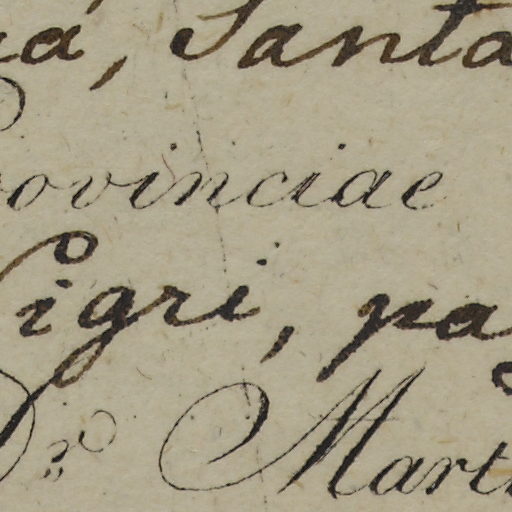 a, Santa
ovinciae
igri, pa
Dr Mart